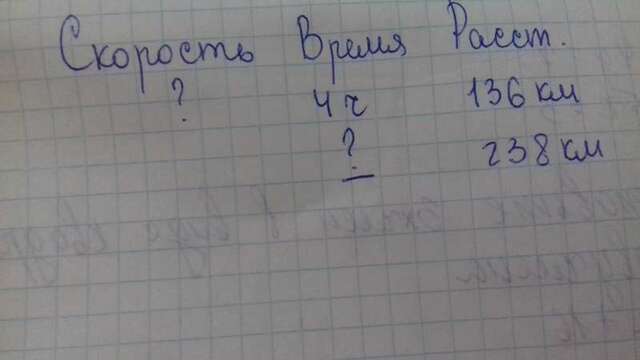 Скорость Время Расст.
? 4ч 136 км
? 238 км